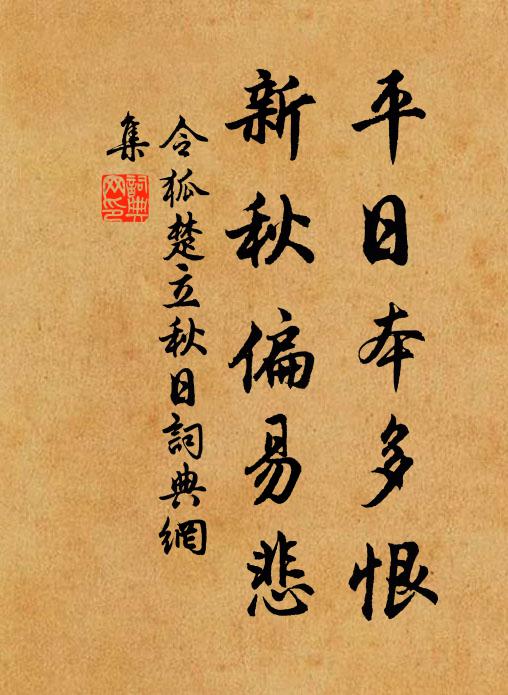 平日本多恨
新秋偏易悲
令狐楚立秋日詞典網
集
詞典
网印